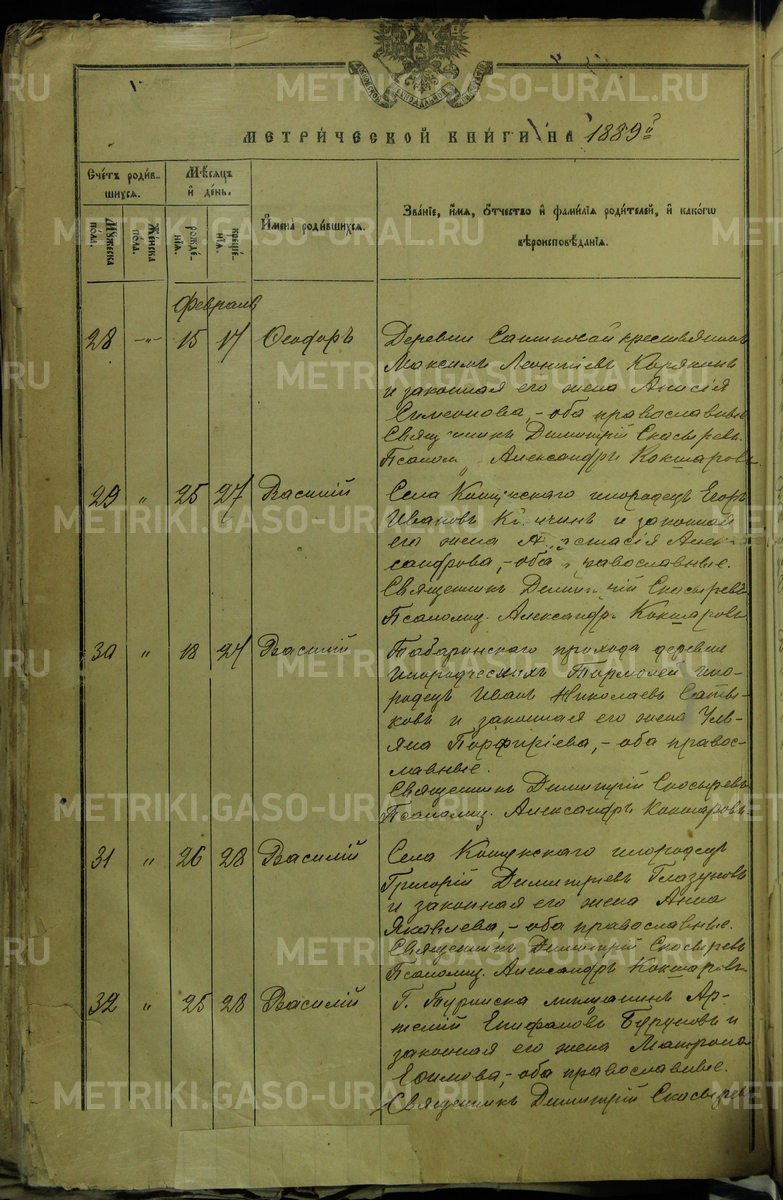 МЕТРИ́ЧЕСКОЙ КНИ́ГИ НА 1889й
Сче́тъ роди́в-
шихся.
Мѣ́сяцъ
и҆ де́нь.
И҆мена̀ роди́вшихся.
Зва́нїе, и҆́мя, ѻ҆́тчество и҆ фами́лїя роди́телей, и҆ како́гѡ
вѣроисповѣ́данїя.
Му́жеска
по́ла.
Же́нска
по́ла.
рожде́-
нїя.
креще́-
нїя.
Февраль
28 15 17 Ѳеодоръ Деревни крестьянинъ
Максимъ Леонтіевъ Корякинъ
и законная его жена Анисія
Симеонова, - оба православные
Священникъ Димитрій Скосыревъ.
Псалом Александръ Кокшаровъ
29 " 25 27 Василій Села Кошукскаго инородецъ Егоръ
Ивановъ и законная
его жена Анастасія Алек-
сандрова, - оба православные.
Священникъ Димитрій Скосыревъ
Псаломщ. Александръ Кокшаровъ
30 " 18 27 Василій Табаринскаго прихода деревни
Инородческихъ ино-
родецъ Иванъ Николаевъ Саты-
ковъ и законная его жена Уль-
яна Порфиріева, - оба правос-
лавные.
Священникъ Димитрій Скосыревъ
Псаломщ. Александръ Кокшаровъ
31 " 26 28 Василій Села Кошукскаго инородецъ
Григорій Димитріевъ Глазуновъ
и законная его жена Анна
Яковлева, - оба православные.
Священникъ Димитрій Скосыревъ
Псаломщ. Александръ Кокшаровъ
32 " 25 28 Василій Г. Туринска мѣщанинъ Ар-
темій Епифановъ Буруновъ и
законная его жена Матрона
Ефимова, - оба православные.
Священникъ Димитрій Скосыревъ
METRIKI.GASO-URAL.RU